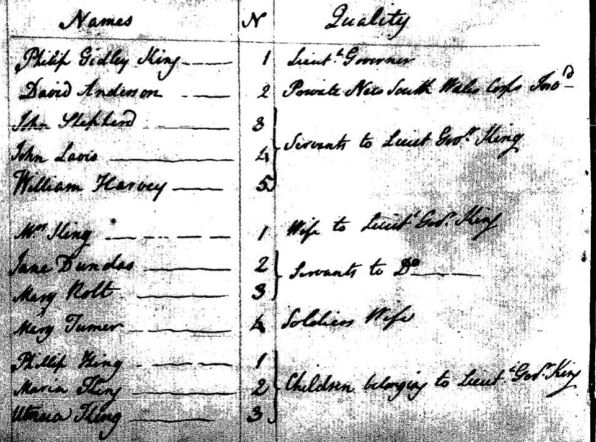 Names N Quality
Philip Gidley King 1 Lieut.t Governor
David Anderson 2 Private New South Wales Corps
John Shepherd 3
John Lavis 4 Servants to Lieut Gov.r King
William Harvey 5
Mrs King 1 Wife to Lieut.t Gov.r King
Jane Dundas 2
Servants to Do
Mary Rolt 3
Mary Turner 4 Soldiers Wife
Phillip King 1
Maria King 2 Children belonging to Lieut.t Gov.r King
King 3